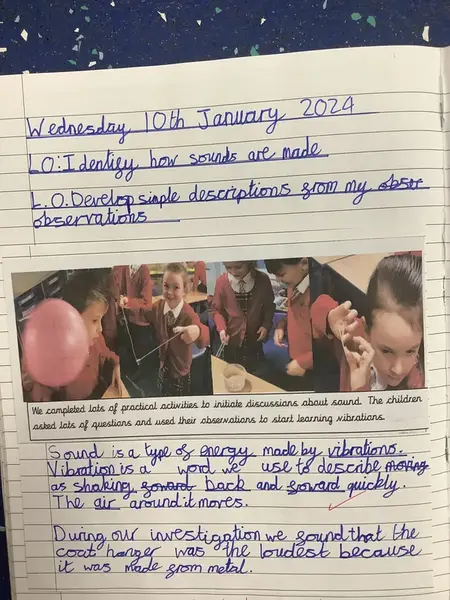 Wednesday 10th January 2024
LO:Identify how sounds are made
L.O.Develop simple descriptions from my obser
observations
We completed lots of practical activities to initiate discussions about sound. The children
asked lots of questions and used their observations to start learning vibrations.
Sound is a type of energy made by vibrations.
Vibration is a word we use to describe moving
as shaking, foward back and foward quickly.
The air around it moves.
During our investigation we found that the
coat hanger was the loudest because
it was made from metal.